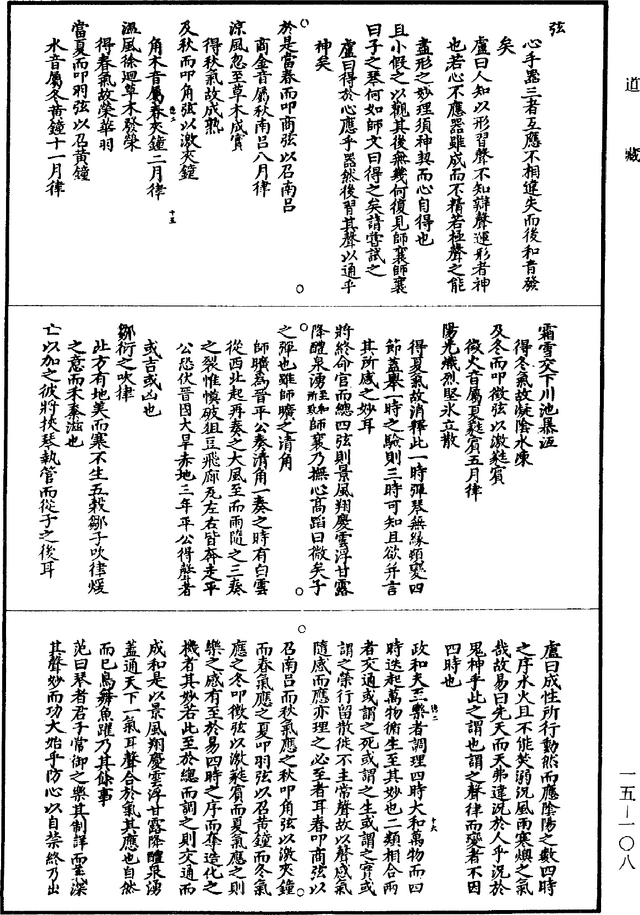 道藏
弦
心手器三者互應不相違失而後和音發
矣
盧曰人知以形習聲不知辯聲運形者神
也若心不應器雖成而不精若極聲之能
盡形之妙理須神契而心自得也
且小假之以觀其後無幾何復見師襄師襄
曰子之琴何如師文曰得之矣請嘗試之
盧曰得於心應乎器然後習其聲以通乎
神矣
於是當春而叩商弦以召南呂
商金音屬秋南呂八月律
涼風忽至草木成實
得秋氣故成熟
及秋而叩角弦以激夾鐘
角木音屬春夾鐘二月律
十五
溫風徐迴草木發榮
得春氣故榮華羽
當夏而叩羽弦以召黃鐘
水音屬冬黃鐘十一月律
霜雪交下川池暴沍
得冬氣故凝陰水凍
及冬而叩徵弦以激蕤賓
徵火音屬夏蕤賓五月律
陽光熾烈堅氷立散
得夏氣故消釋此一時彈琴無緣頓變四
節蓋舉一時之驗則三時可知且欲并言
其所感之妙耳
將終命宮而總四弦則景風翔慶雲浮甘露
降醴泉湧所至和師襄乃撫心高蹈曰微矣子
之彈也雖師曠之清角
師曠為晉平公奏清角一奏之時有白雲
從西北起再奏之大風至而雨隨之三奏
之裂帷幙破俎豆飛廊瓦左右皆奔走平
公恐伏晉國大旱赤地三年平公得聲者
或吉或凶也
鄒衍之吹律
北方有地美而寒不生五穀鄒子吹律煖
之意而禾黍滋也
亡以加之彼將挾琴執管而從子之後耳
盧曰成性所行動然而應陰陽之數四時
之序水火且不能焚溺況風雨寒燠之氣
哉故易曰先天而天弗違況於人乎況於
鬼神乎此之謂也謂之聲律而變者不因
四時也
政和夫至樂者調理四時大和萬物而四
時迭起萬物循生至其妙也二類相合兩
十六
者交通或謂之死或謂之生或謂之實或
謂之榮行留散徙不主常聲故以聲感氣
隨感而應亦理之必至者耳春叩商弦以
召南呂而秋氣應之秋叩角弦以激夾鐘
而春氣應之夏叩羽弦以召黃鐘而冬氣
應之冬叩徵弦以激蕤賓而夏氣應之則
樂之感有至於易四時之序而奪造化之
機者其妙若此至於總而調之則交通而
成和是以景風翔慶雲浮甘露降醴泉湧
蓋通天下一氣耳聲合於氣其應也自然
而已鳥舞魚躍乃其餘事
范曰琴者君子常御之樂其制詳而至深
其聲妙而功大始乎防心以自禁終乃出
一五—一〇八